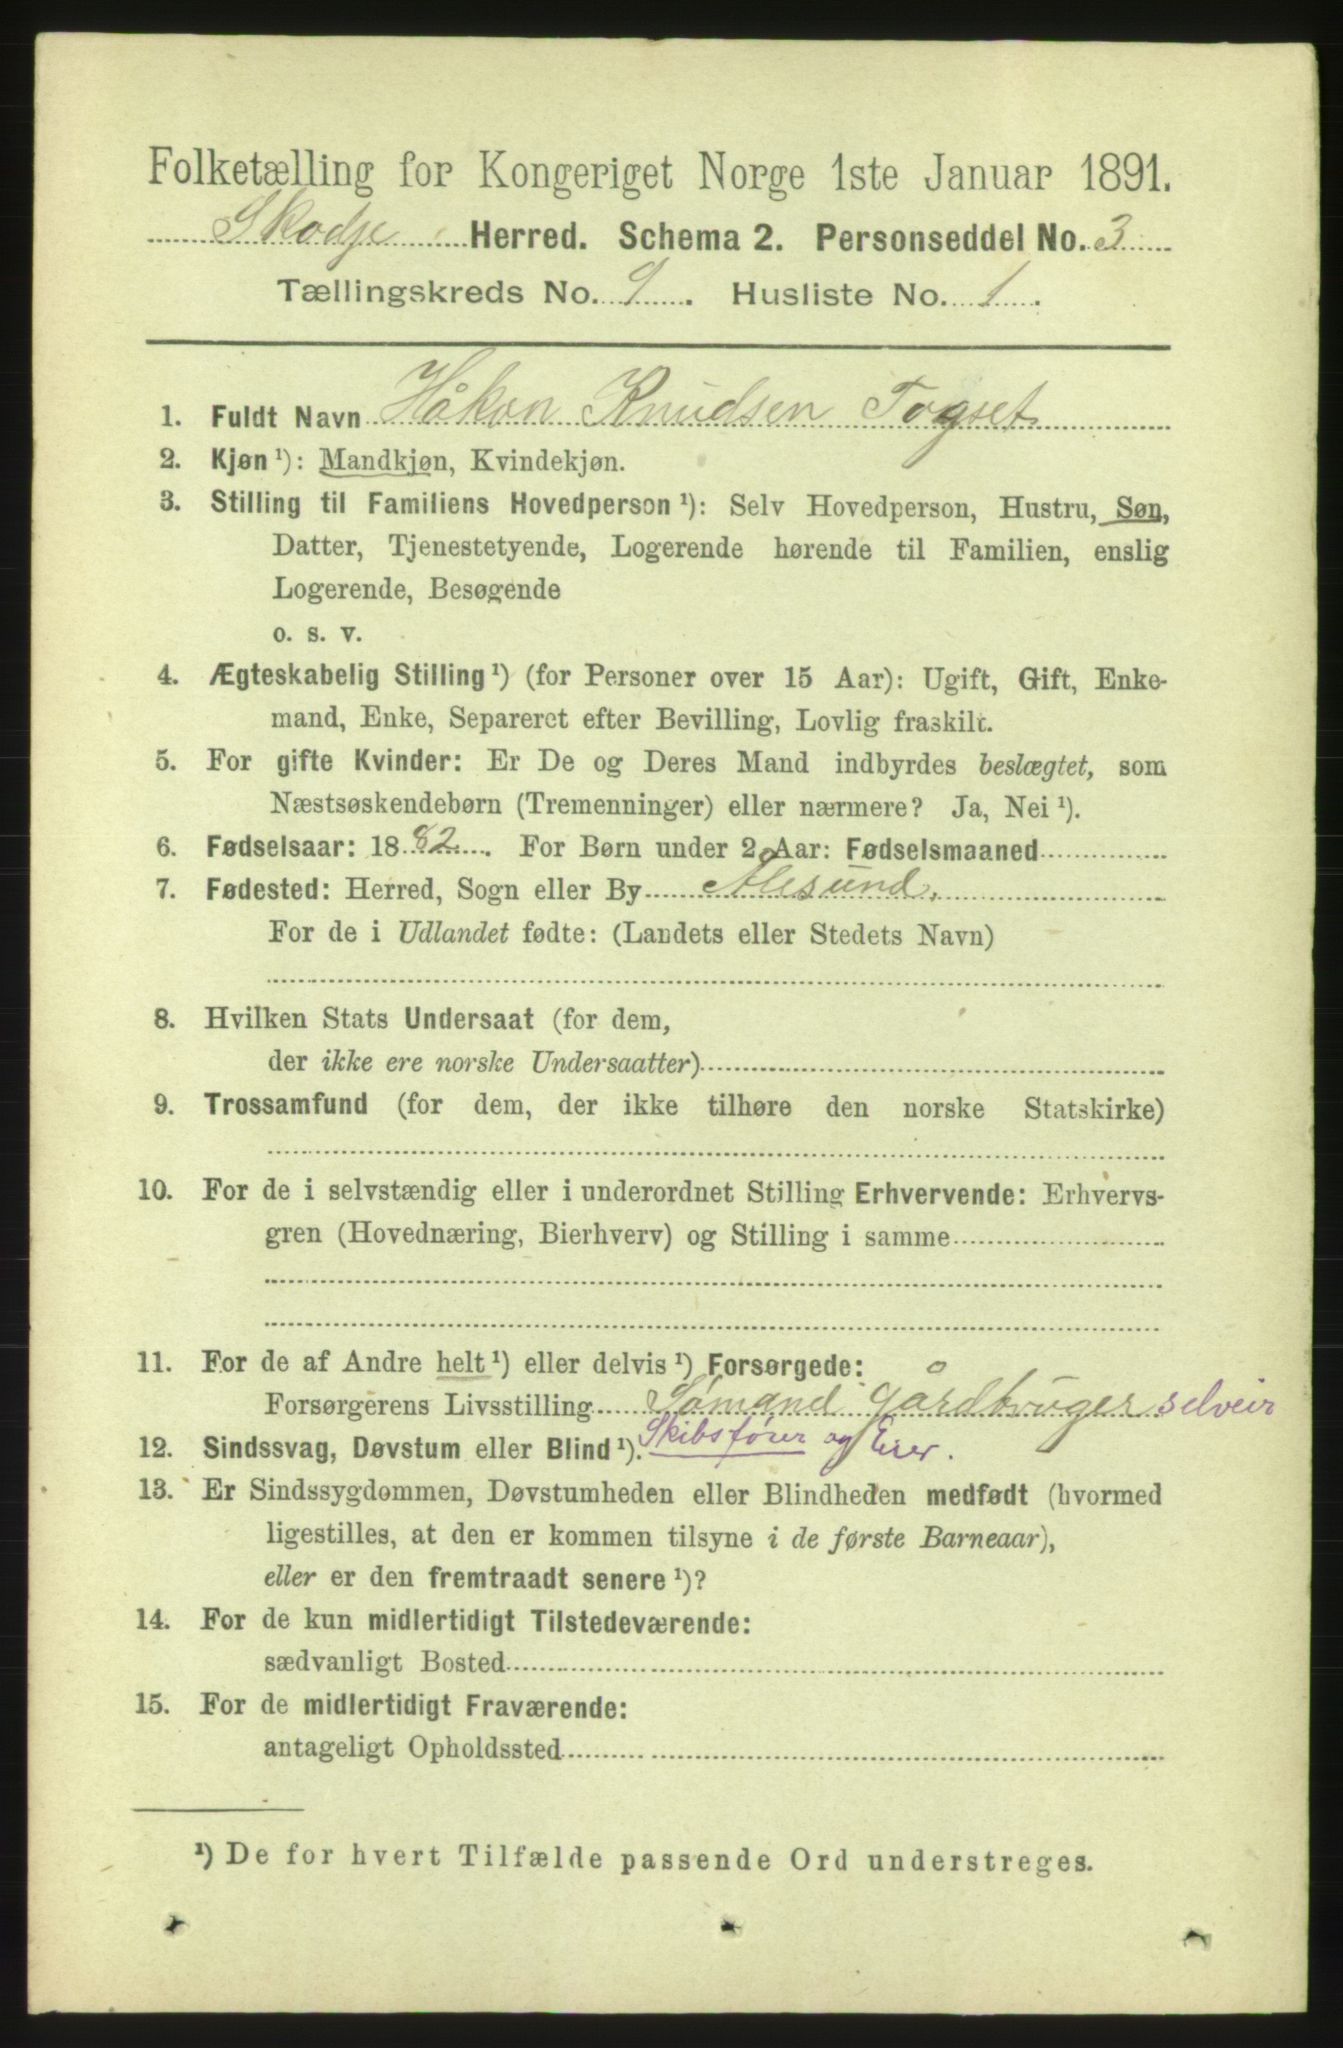 Folketælling for Kongeriget Norge 1ste Januar 1891.
Skodje Herred. Schema 2. Personseddel No. 3
Tællingskreds No. 9. Husliste No. 1.
1. Fuldt Navn Håkon Knudsen Togset
2. Kjøn ¹): Mandkjøn, Kvindekjøn.
3. Stilling til Familiens Hovedperson ¹): Selv Hovedperson, Hustru, Søn,
Datter, Tjenestetyende, Logerende hørende til Familien, enslig
Logerende, Besøgende
o. s. v.
4. Ægteskabelig Stilling ¹) (for Personer over 15 Aar): Ugift, Gift, Enke-
mand, Enke, Separeret efter Bevilling, Lovlig fraskilt.
5. For gifte Kvinder: Er De og Deres Mand indbyrdes beslægtet, som
Næstsøskendebørn (Tremenninger) eller nærmere? Ja, Nei ¹).
6. Fødselsaar: 1882. For Børn under 2 Aar: Fødselsmaaned
7. Fødested: Herred, Sogn eller By Ålesund.
For de i Udlandet fødte: (Landets eller Stedets Navn)
8. Hvilken Stats Undersaat (for dem,
der ikke ere norske Undersaatter)
9. Trossamfund (for dem, der ikke tilhøre den norske Statskirke)
10. For de i selvstændig eller i underordnet Stilling Erhvervende: Erhvervs-
gren (Hovednæring, Bierhverv) og Stilling i samme
11. For de af Andre helt ¹) eller delvis ¹) Forsørgede:
Forsørgerens Livsstilling Sømand gårdbruger selveir
12. Sindssvag, Døvstum eller Blind ¹). Skibsfører og Eier.
13. Er Sindssygdommen, Døvstumheden eller Blindheden medfødt (hvormed
ligestilles, at den er kommen tilsyne i de første Barneaar),
eller er den fremtraadt senere ¹)?
14. For de kun midlertidigt Tilstedeværende:
sædvanligt Bosted
15. For de midlertidigt Fraværende:
antageligt Opholdssted
¹) De for hvert Tilfælde passende Ord understreges.